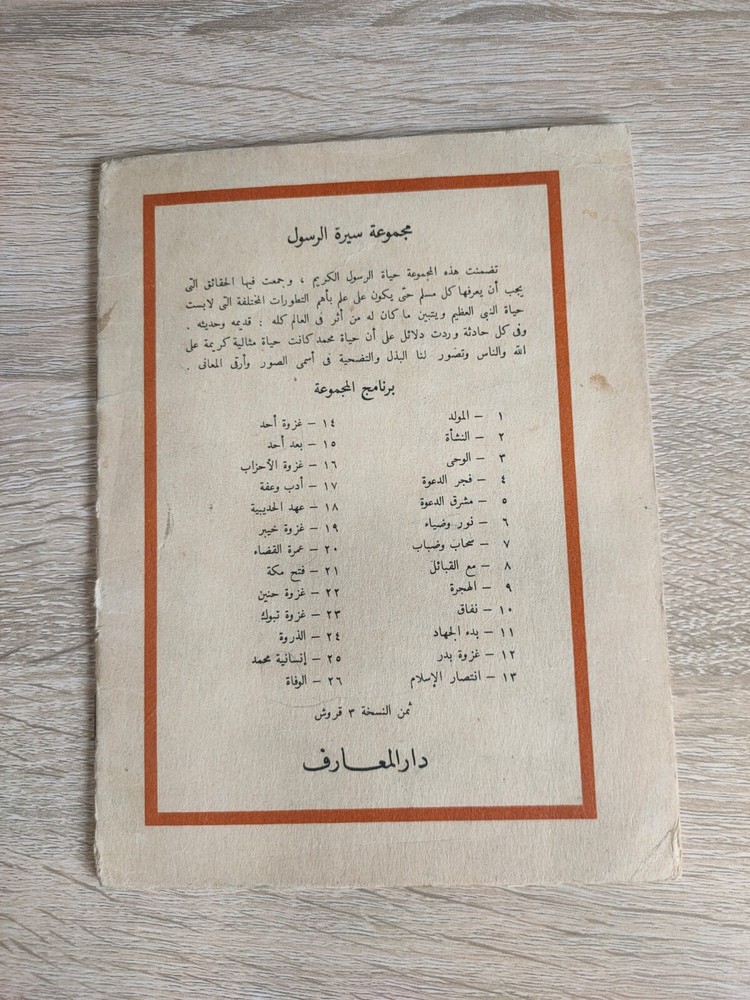 مجموعة سيرة الرسول
تضمنت هذه المجموعة حياة الرسول الكريم ، وجمعت فيها الحقائق التى
يجب أن يعرفها كل مسلم حتى يكون على علم بأهم التطورات المختلفة التى لابست
حياة النبى العظيم ويتبين ما كان له من أثر فى العالم كله : قديمه وحديثه .
وفى كل حادثة وردت دلائل على أن حياة محمد كانت حياة مثالية كريمة على
الله والناس وتصور لنا البذل والتضحية فى أسمى الصور وأرقى المعانى .
برنامج المجموعة
١ – المولد
٢ – النشأة
٣ – الوحى
٤ – فجر الدعوة
٥ – مشرق الدعوة
٦ – نور وضياء
٧ – سحاب وضباب
٨ – مع القبائل
٩ – الهجرة
١٠ – نفاق
١١ – بدء الجهاد
١٢ – غزوة بدر
١٣ – انتصار الإسلام
١٤ – غزوة أحد
١٥ – بعد أحد
١٦ – غزوة الأحزاب
١٧ – أدب وعفة
١٨ – عهد الحديبية
١٩ – غزوة خيبر
٢٠ – عمرة القضاء
٢١ – فتح مكة
٢٢ – غزوة حنين
٢٣ – غزوة تبوك
٢٤ – الذروة
٢٥ – إنسانية محمد
٢٦ – الوفاة
ثمن النسخة ٣ قروش
دار المعارف